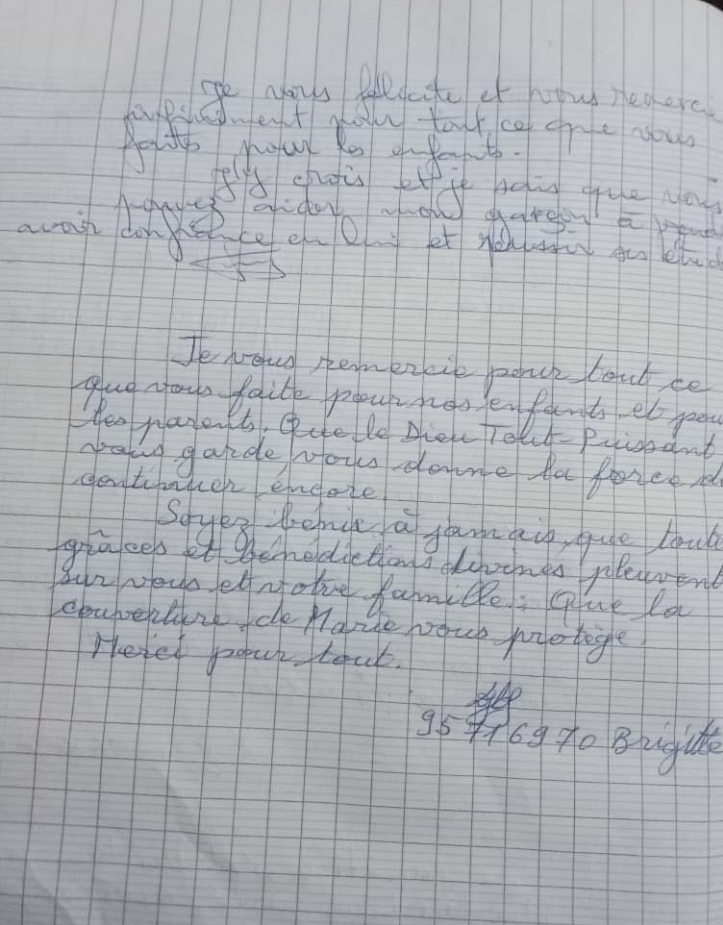 Je vous félicite et vous remerci
infiniment pour tout ce que vous
faites pour les enfants.
J'y crois et je sais que vous
pouvez aider mon garçon à
avoir confiance en lui et réussir ses étud
Je vous remercie pour tout ce
que vous faite pour nos enfants et pou
les parents. Que le Dieu Tout-Puissant
vous garde, vous donne la force d
continuer encore.
Soyez bénix à jamais, que toute
grâces et bénédictions divines pleuvent
sur vous et votre famille. Que la
couverture de Marie vous protège.
Merci pour tout.
95716970 Brigitte